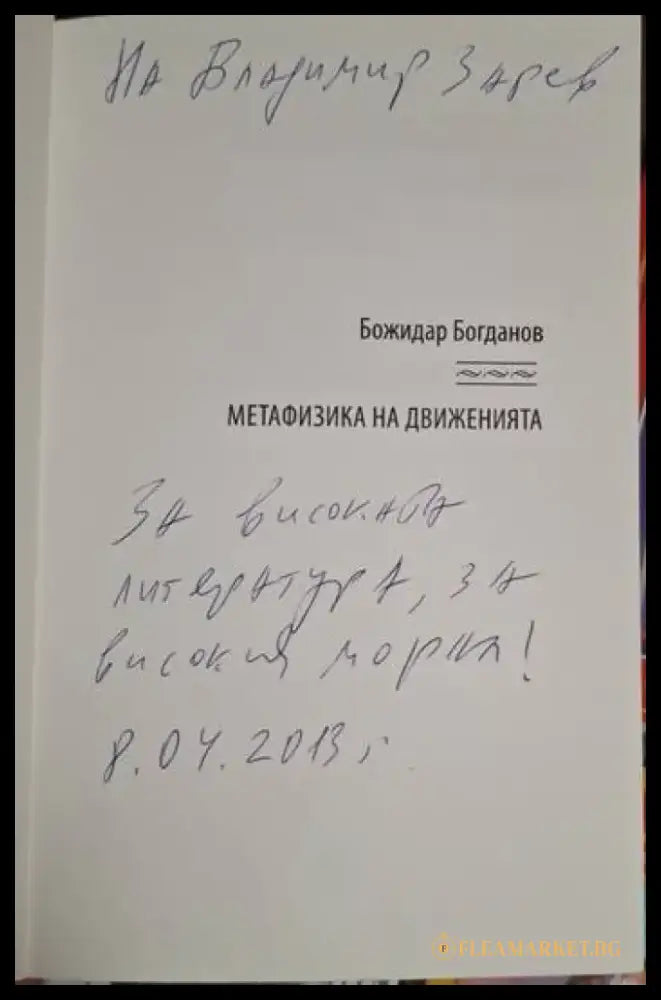 На Владимир Зарев
Божидар Богданов
МЕТАФИЗИКА НА ДВИЖЕНИЯТА
За високата
литература, за
високия морал!
8.04.2013 г.
FLEAMARKET.BG